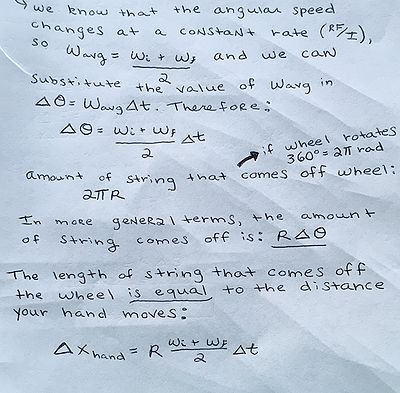 ↳ we know that the angular speed
changes at a constant rate (RF/I),
so ωavg = (ωi + ωf)/2 and we can
substitute the value of ωavg in
Δθ = ωavgΔt. Therefore:
Δθ = (ωi + ωf)/2 Δt
if wheel rotates
360° = 2π rad
amount of string that comes off wheel:
2πR
In more general terms, the amount
of string comes off is: RΔθ
The length of string that comes off
the wheel is equal to the distance
your hand moves:
Δxhand = R (ωi + ωf)/2 Δt